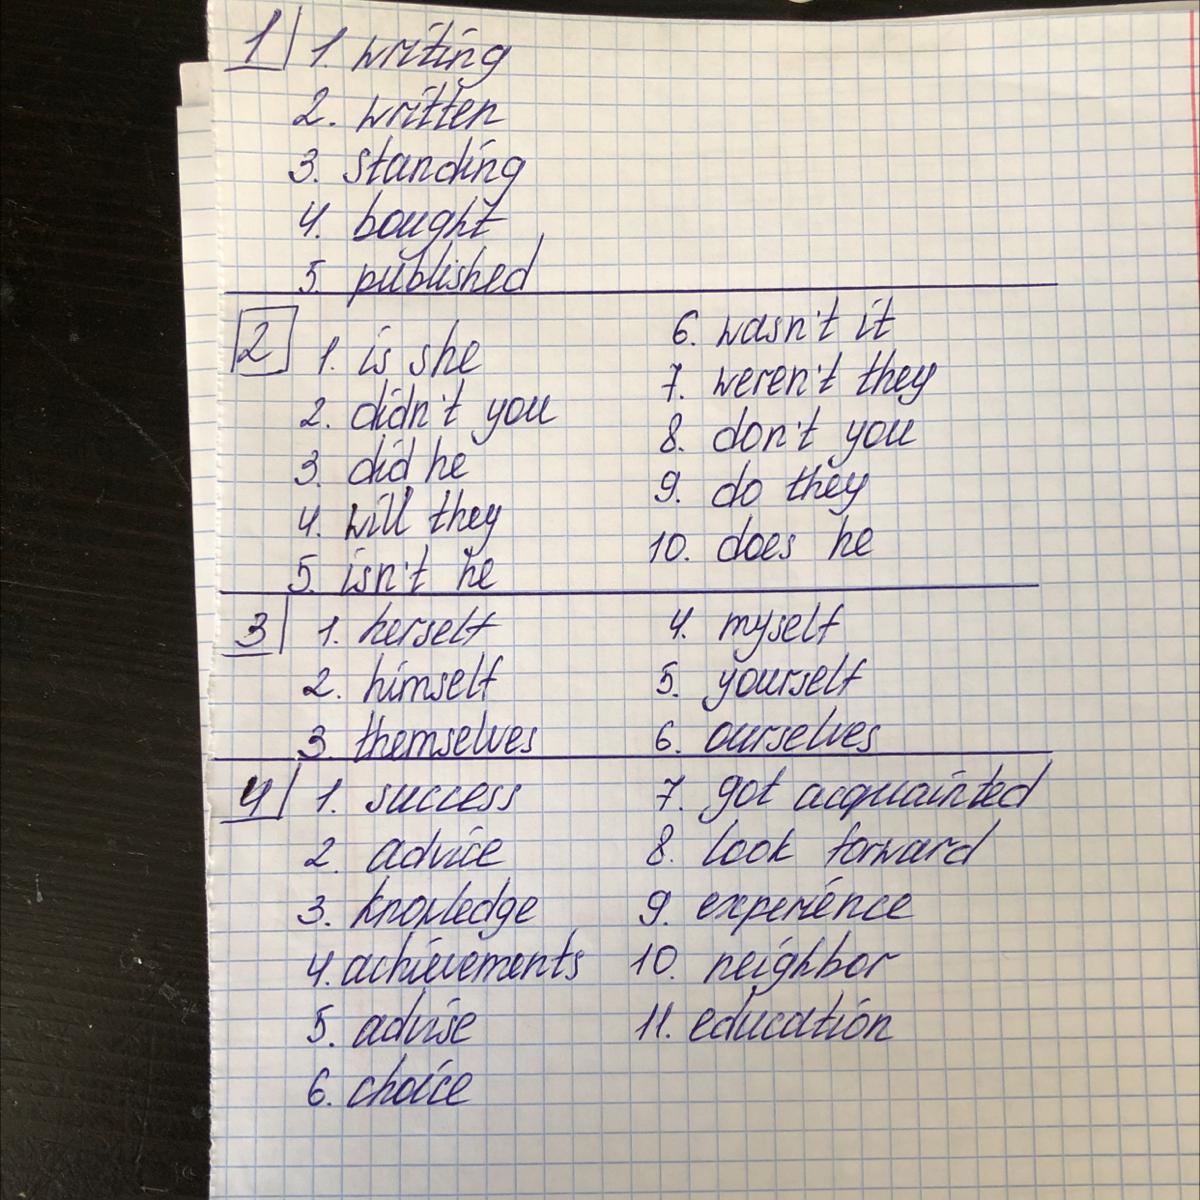 1 1. writing
2. written
3. standing
4. bought
5. published
2 1. is she
2. didn't you
3. did he
4. will they
5. isn't he
6. wasn't it
7. weren't they
8. don't you
9. do they
10. does he
3 1. herself
2. himself
3. themselves
4. myself
5. yourself
6. ourselves
4 1. success
2. advice
3. knowledge
4. achievements
5. advise
6. choice
7. got acquainted
8. look forward
9. experience
10. neighbor
11. education